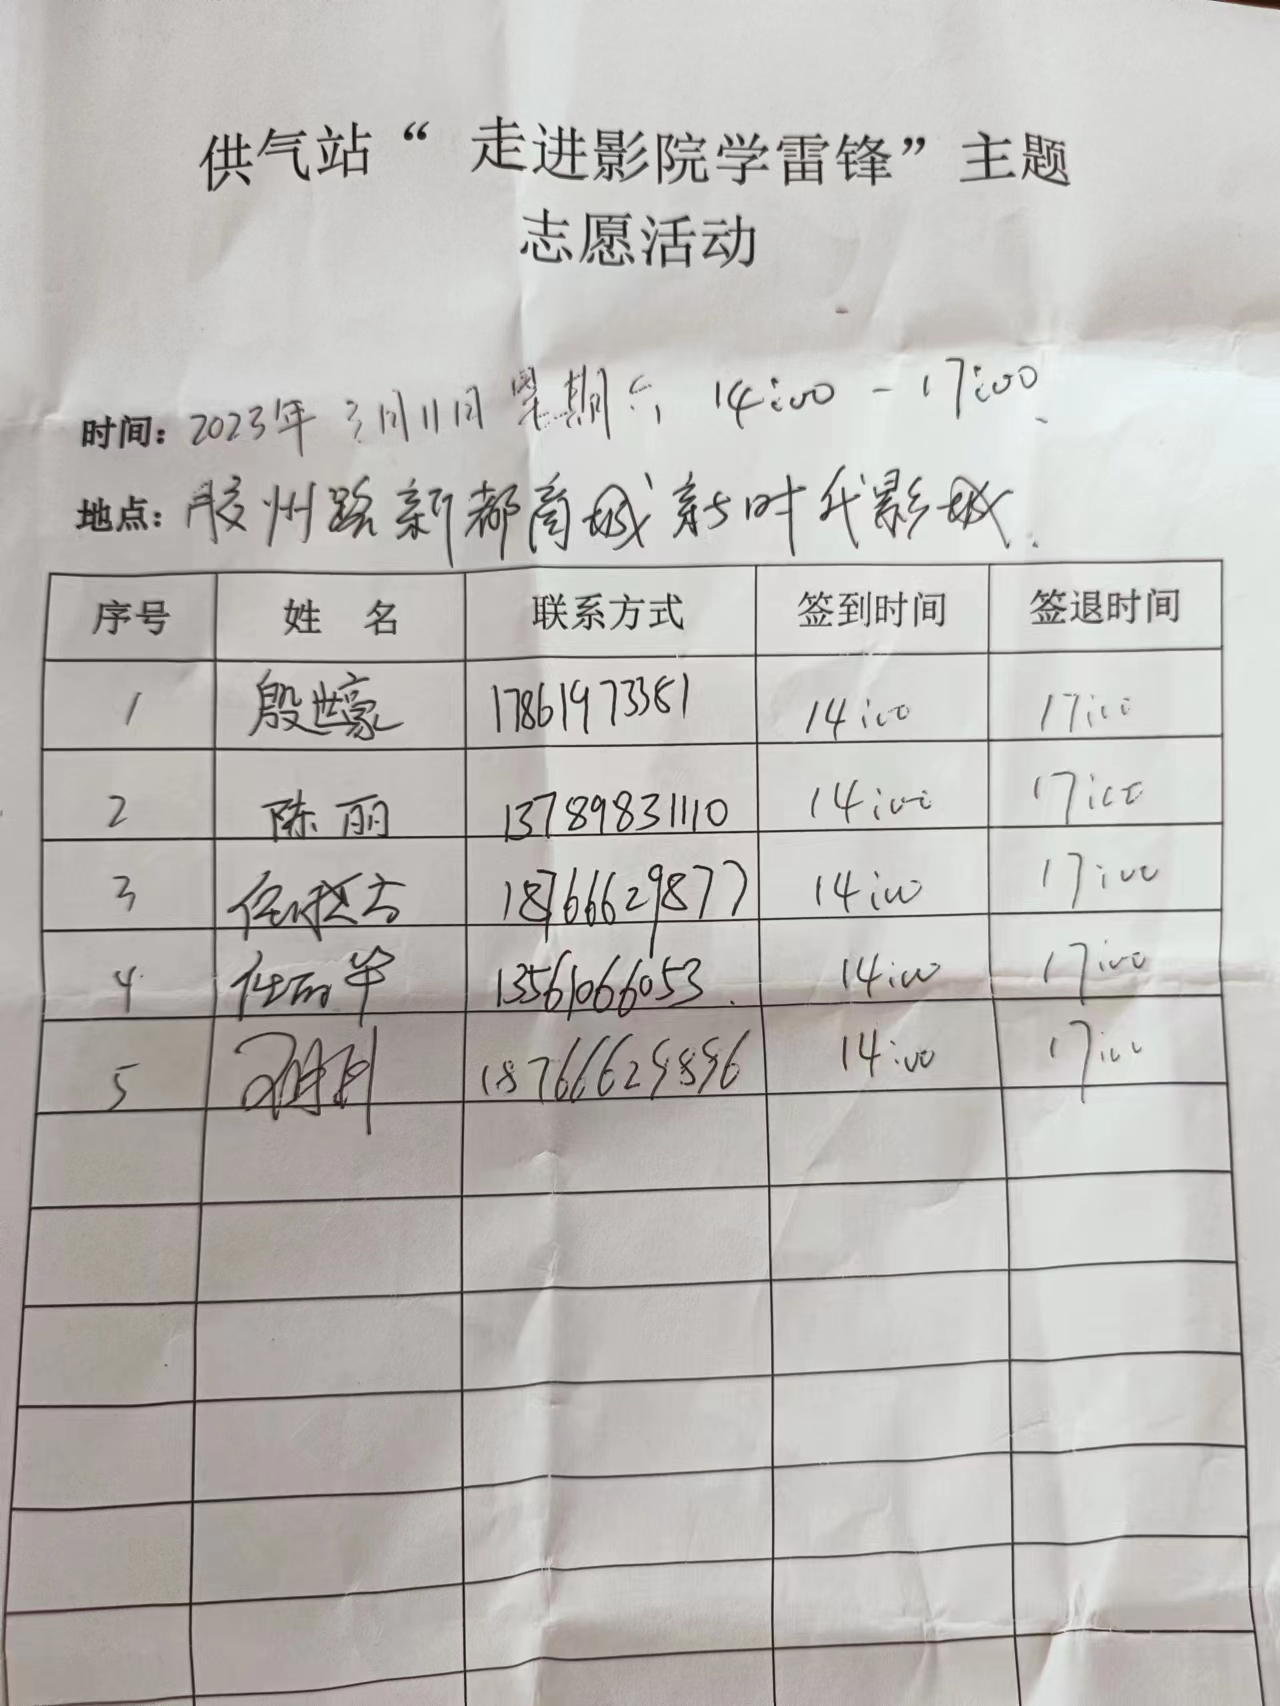 供气站“ 走进影院学雷锋”主题
志愿活动
时间：2023年 3月11日 星期六 14:00 - 17:00
地点：胶州路新都商城新时代影城.
序号 姓 名 联系方式 签到时间 签退时间
1 殷世豪 17861973381 14:00 17:00
2 陈丽 13789831110 14:00 17:00
3 18766629877 14:00 17:00
4 任丽华 13561066053. 14:00 17:00
5 18766629896 14:00 17:00